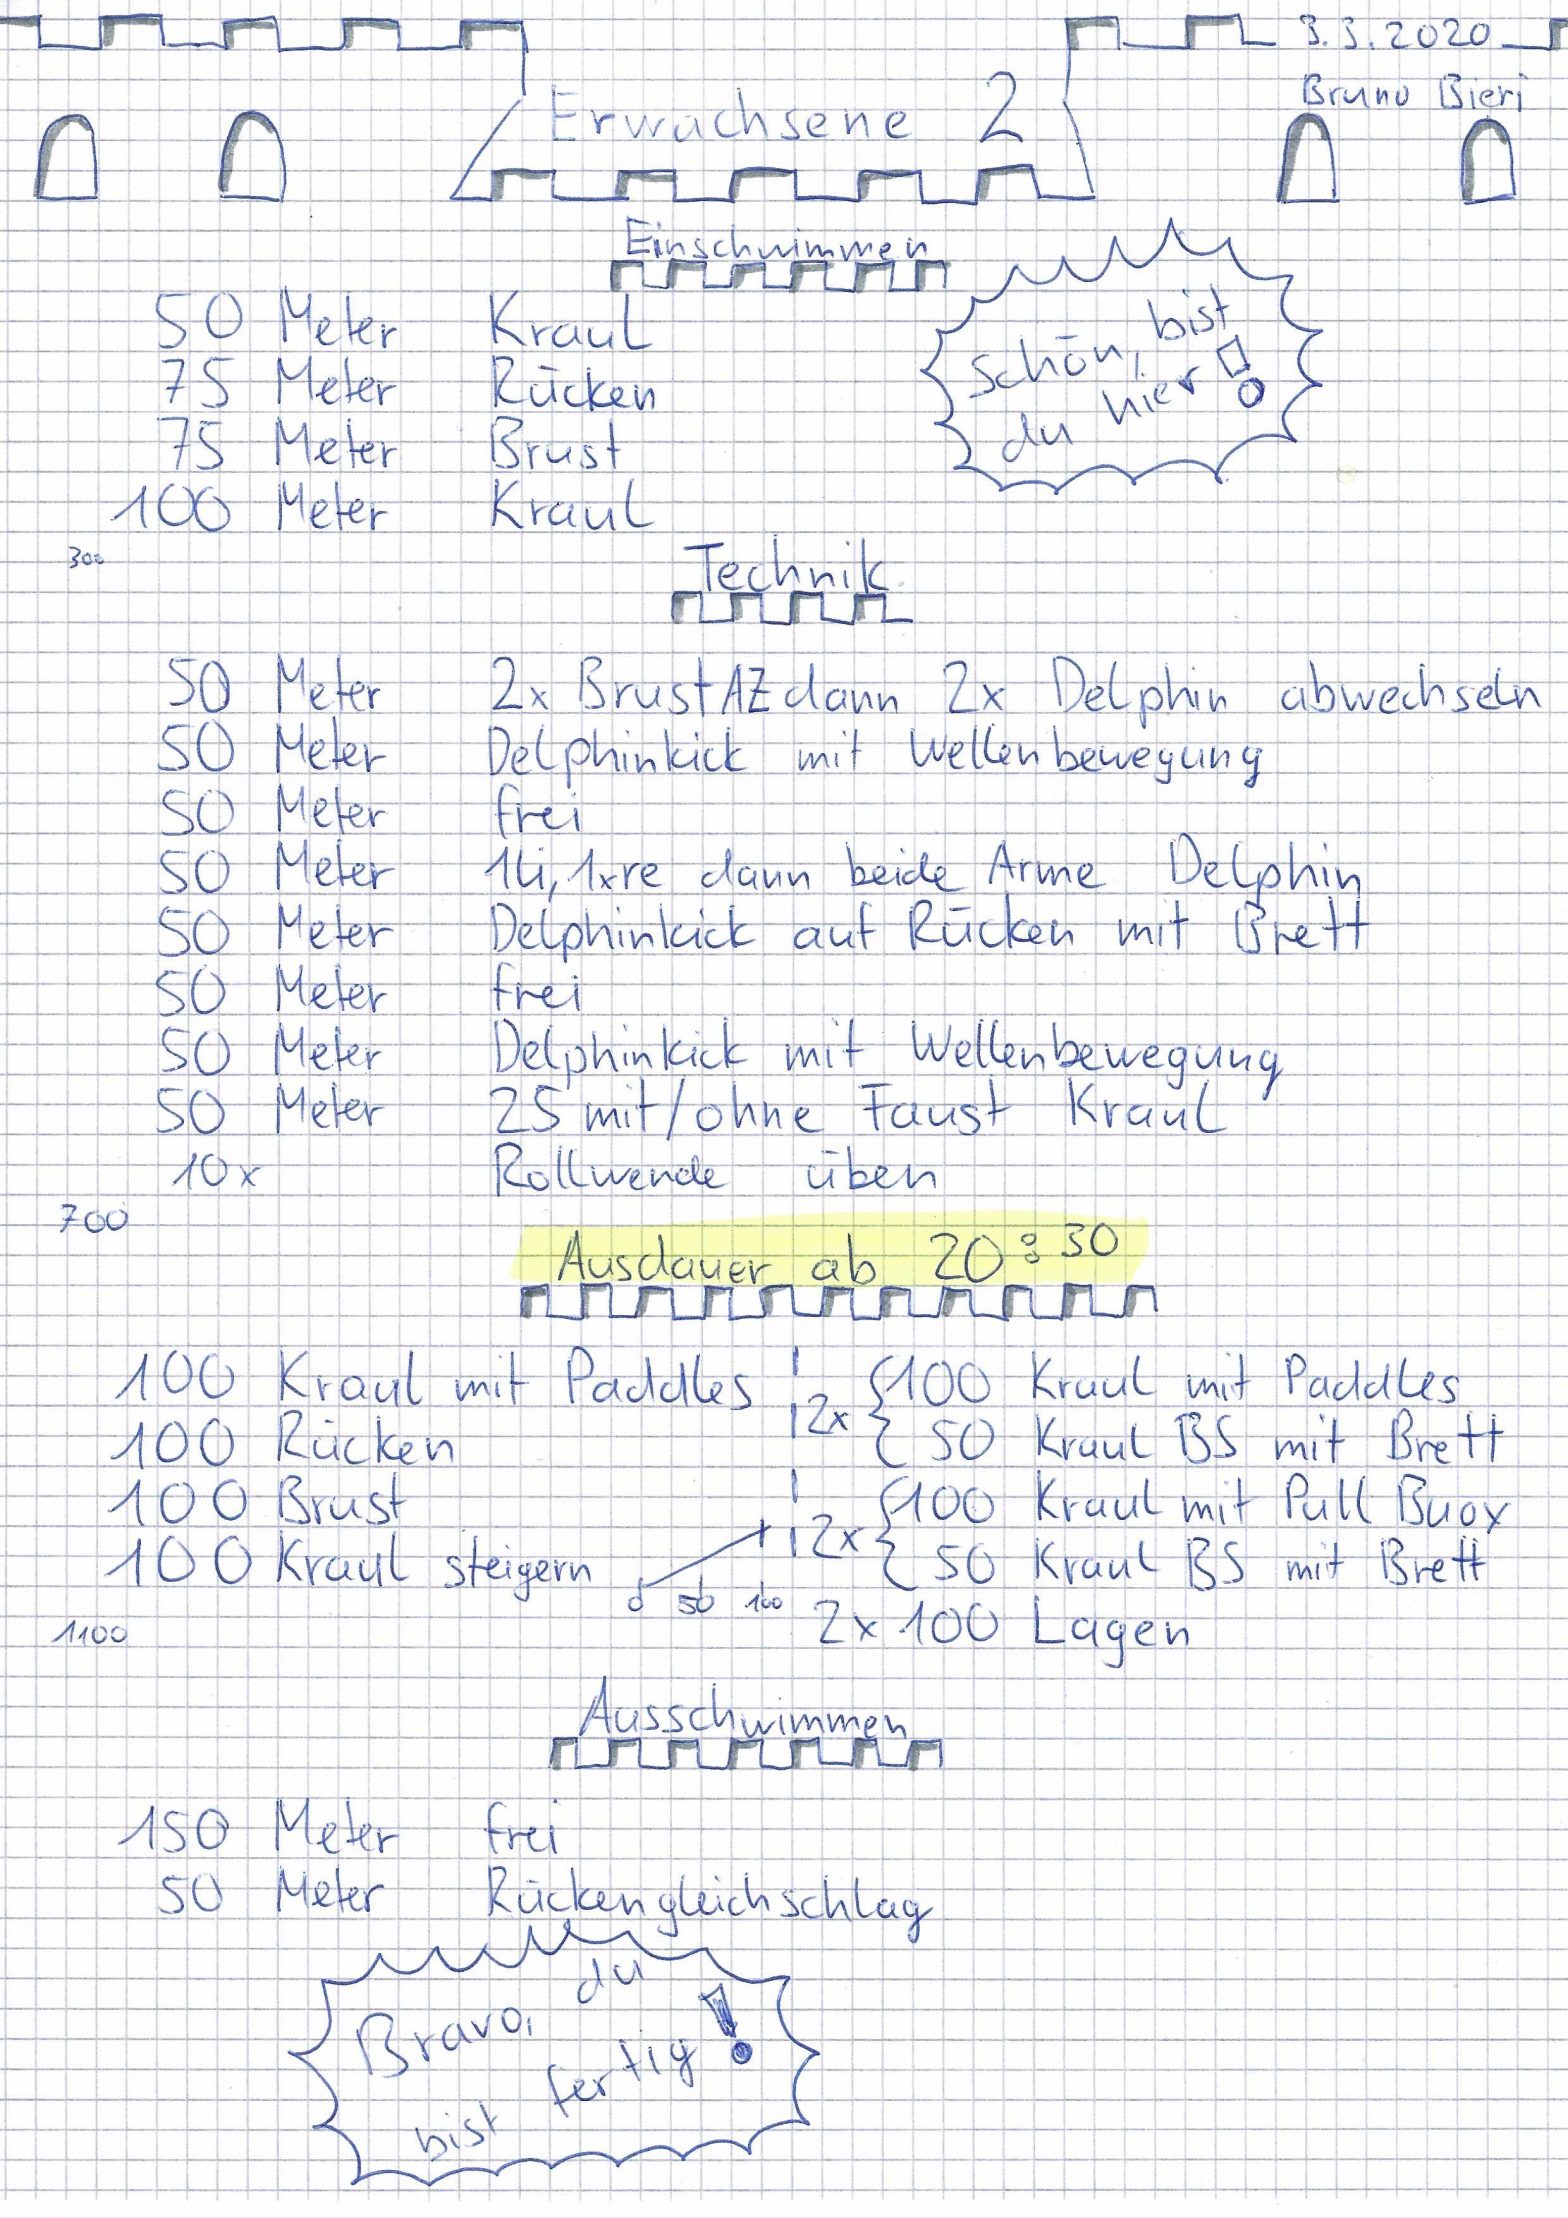 3.3.2020
Bruno Bieri
Erwachsene 2
Einschwimmen
50 Meter Kraul
75 Meter Rücken
75 Meter Brust
100 Meter Kraul
Schön, bist
du hier!
300
Technik
50 Meter 2x Brust AZ dann 2x Delphin abwechseln
50 Meter Delphinkick mit Wellenbewegung
50 Meter frei
50 Meter 1li, 1xre dann beide Arme Delphin
50 Meter Delphinkick auf Rücken mit Brett
50 Meter frei
50 Meter Delphinkick mit Wellenbewegung
50 Meter 25 mit/ohne Faust Kraul
10x Rollwende üben
700
Ausdauer ab 20:30
100 Kraul mit Paddles
100 Rücken
100 Brust
100 Kraul steigern
0 50 100
1100
2x { 100 Kraul mit Paddles
50 Kraul BS mit Brett
2x { 100 Kraul mit Pull Buoy
50 Kraul BS mit Brett
2x 100 Lagen
Ausschwimmen
150 Meter frei
50 Meter Rückengleichschlag
Bravo, du
bist fertig!